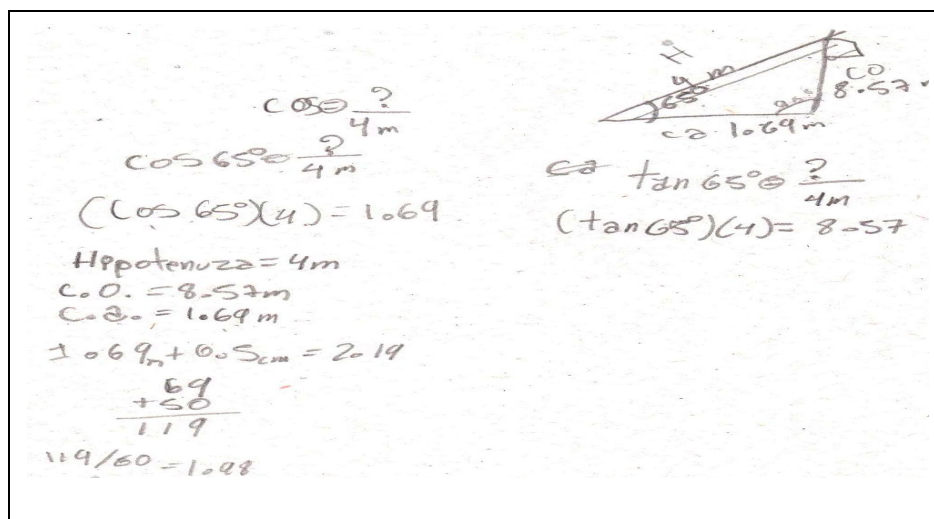 cos = ?/4m
cos 65° = ?/4m
(cos 65°)(4) = 1.69
Hipotenuza = 4m
C.O. = 8.57m
C.a. = 1.69 m
1.69m + 0.5cm = 2.19
69
+50
119
119/60 = 1.98
H
4 m
65°
CO
8.57
ca 1.69m
ca tan 65° = ?/4m
(tan 65°)(4) = 8.57